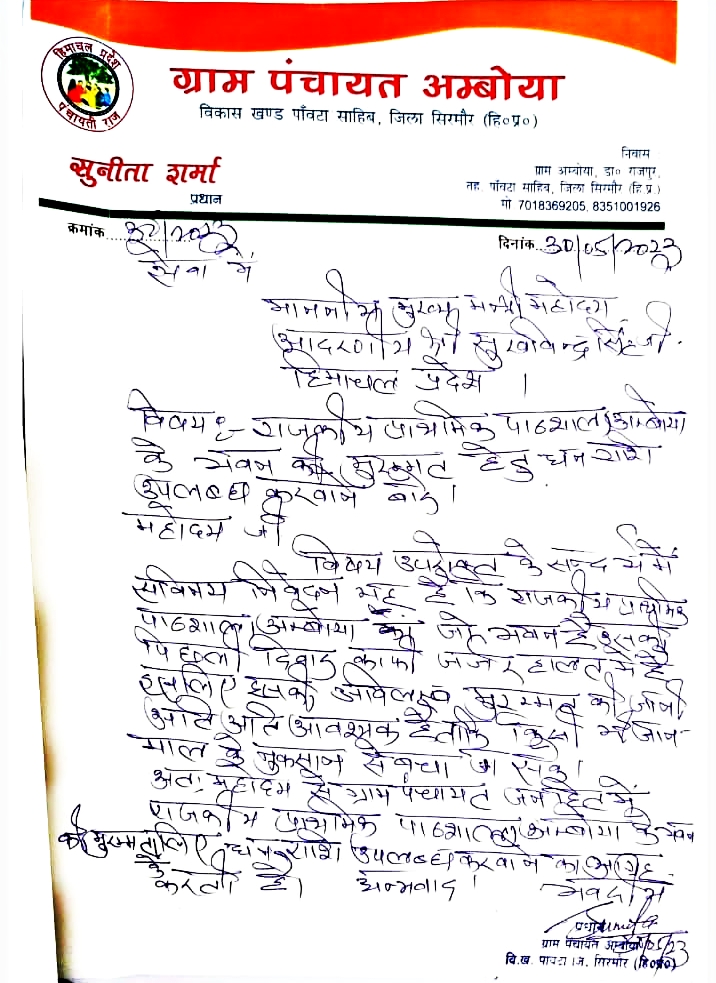 हिमाचल प्रदेश
पंचायती राज
ग्राम पंचायत अम्बोया
विकास खण्ड पाँवटा साहिब, जिला सिरमौर (हि०प्र०)
सुनीता शर्मा
प्रधान
निवास
ग्राम अम्बोया, डा० राजपुर,
तह. पाँवटा साहिब, जिला सिरमौर (हि.प्र.)
मो. 7018369205, 8351001926
क्रमांक 32/2023
दिनांक 30/05/2023
सेवा में
माननीय मुख्य मन्त्री महोदय,
आदरणीय श्री सुखविन्द्र सिंह जी.
हिमाचल प्रदेश ।
विषय:- राजकीय प्राथमिक पाठशाला अम्बोया
के भवन की मुरम्मत हेतु धन राशि
उपलब्ध करवाने बारे।
महोदय जी
विषय उपरोक्त के सन्दर्भ में
सविनय निवेदन यह है कि राजकीय प्राथमिक
पाठशाला अम्बोया का जो भवन है इसकी
पिछली दिवार काफी जर्जर हालत में है
इसलिए इसकी अविलम्ब मुरम्मत की जानी
अति अति आवश्यक है ताकि किसी भी जान
माल के नुकसान से बचा जा सके।
अतः महोदय से ग्राम पंचायत जनहित में
राजकीय प्राथमिक पाठशाला अम्बोया के भवन
की मुरम्मत के लिए धनराशि उपलब्ध करवाने का आग्रह
करती है। धन्यवाद। भवदीय
प्रधान
ग्राम पंचायत अम्बोया
वि.ख. पांवटा जि. सिरमौर (हि०प्र०)